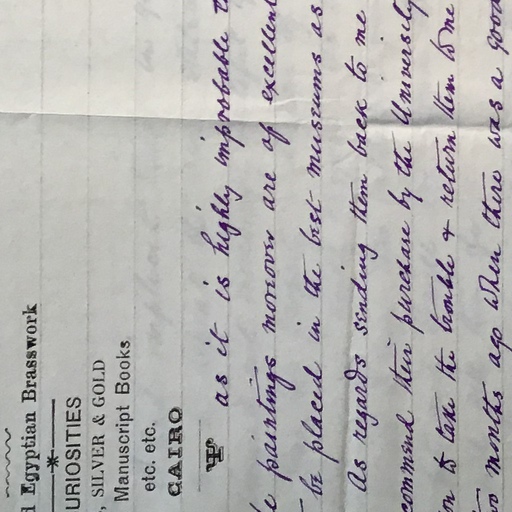 d Egyptian Brasswork
URIOSITIES
, SILVER & GOLD
Manuscript Books
etc. etc.
CAIRO
as it is highly improbable
paintings moreover are of excellent
be placed in the best museums as
As regards sending them back to me
commend their purchase by the University
on to take the trouble & return them to me
two months ago when there was a good